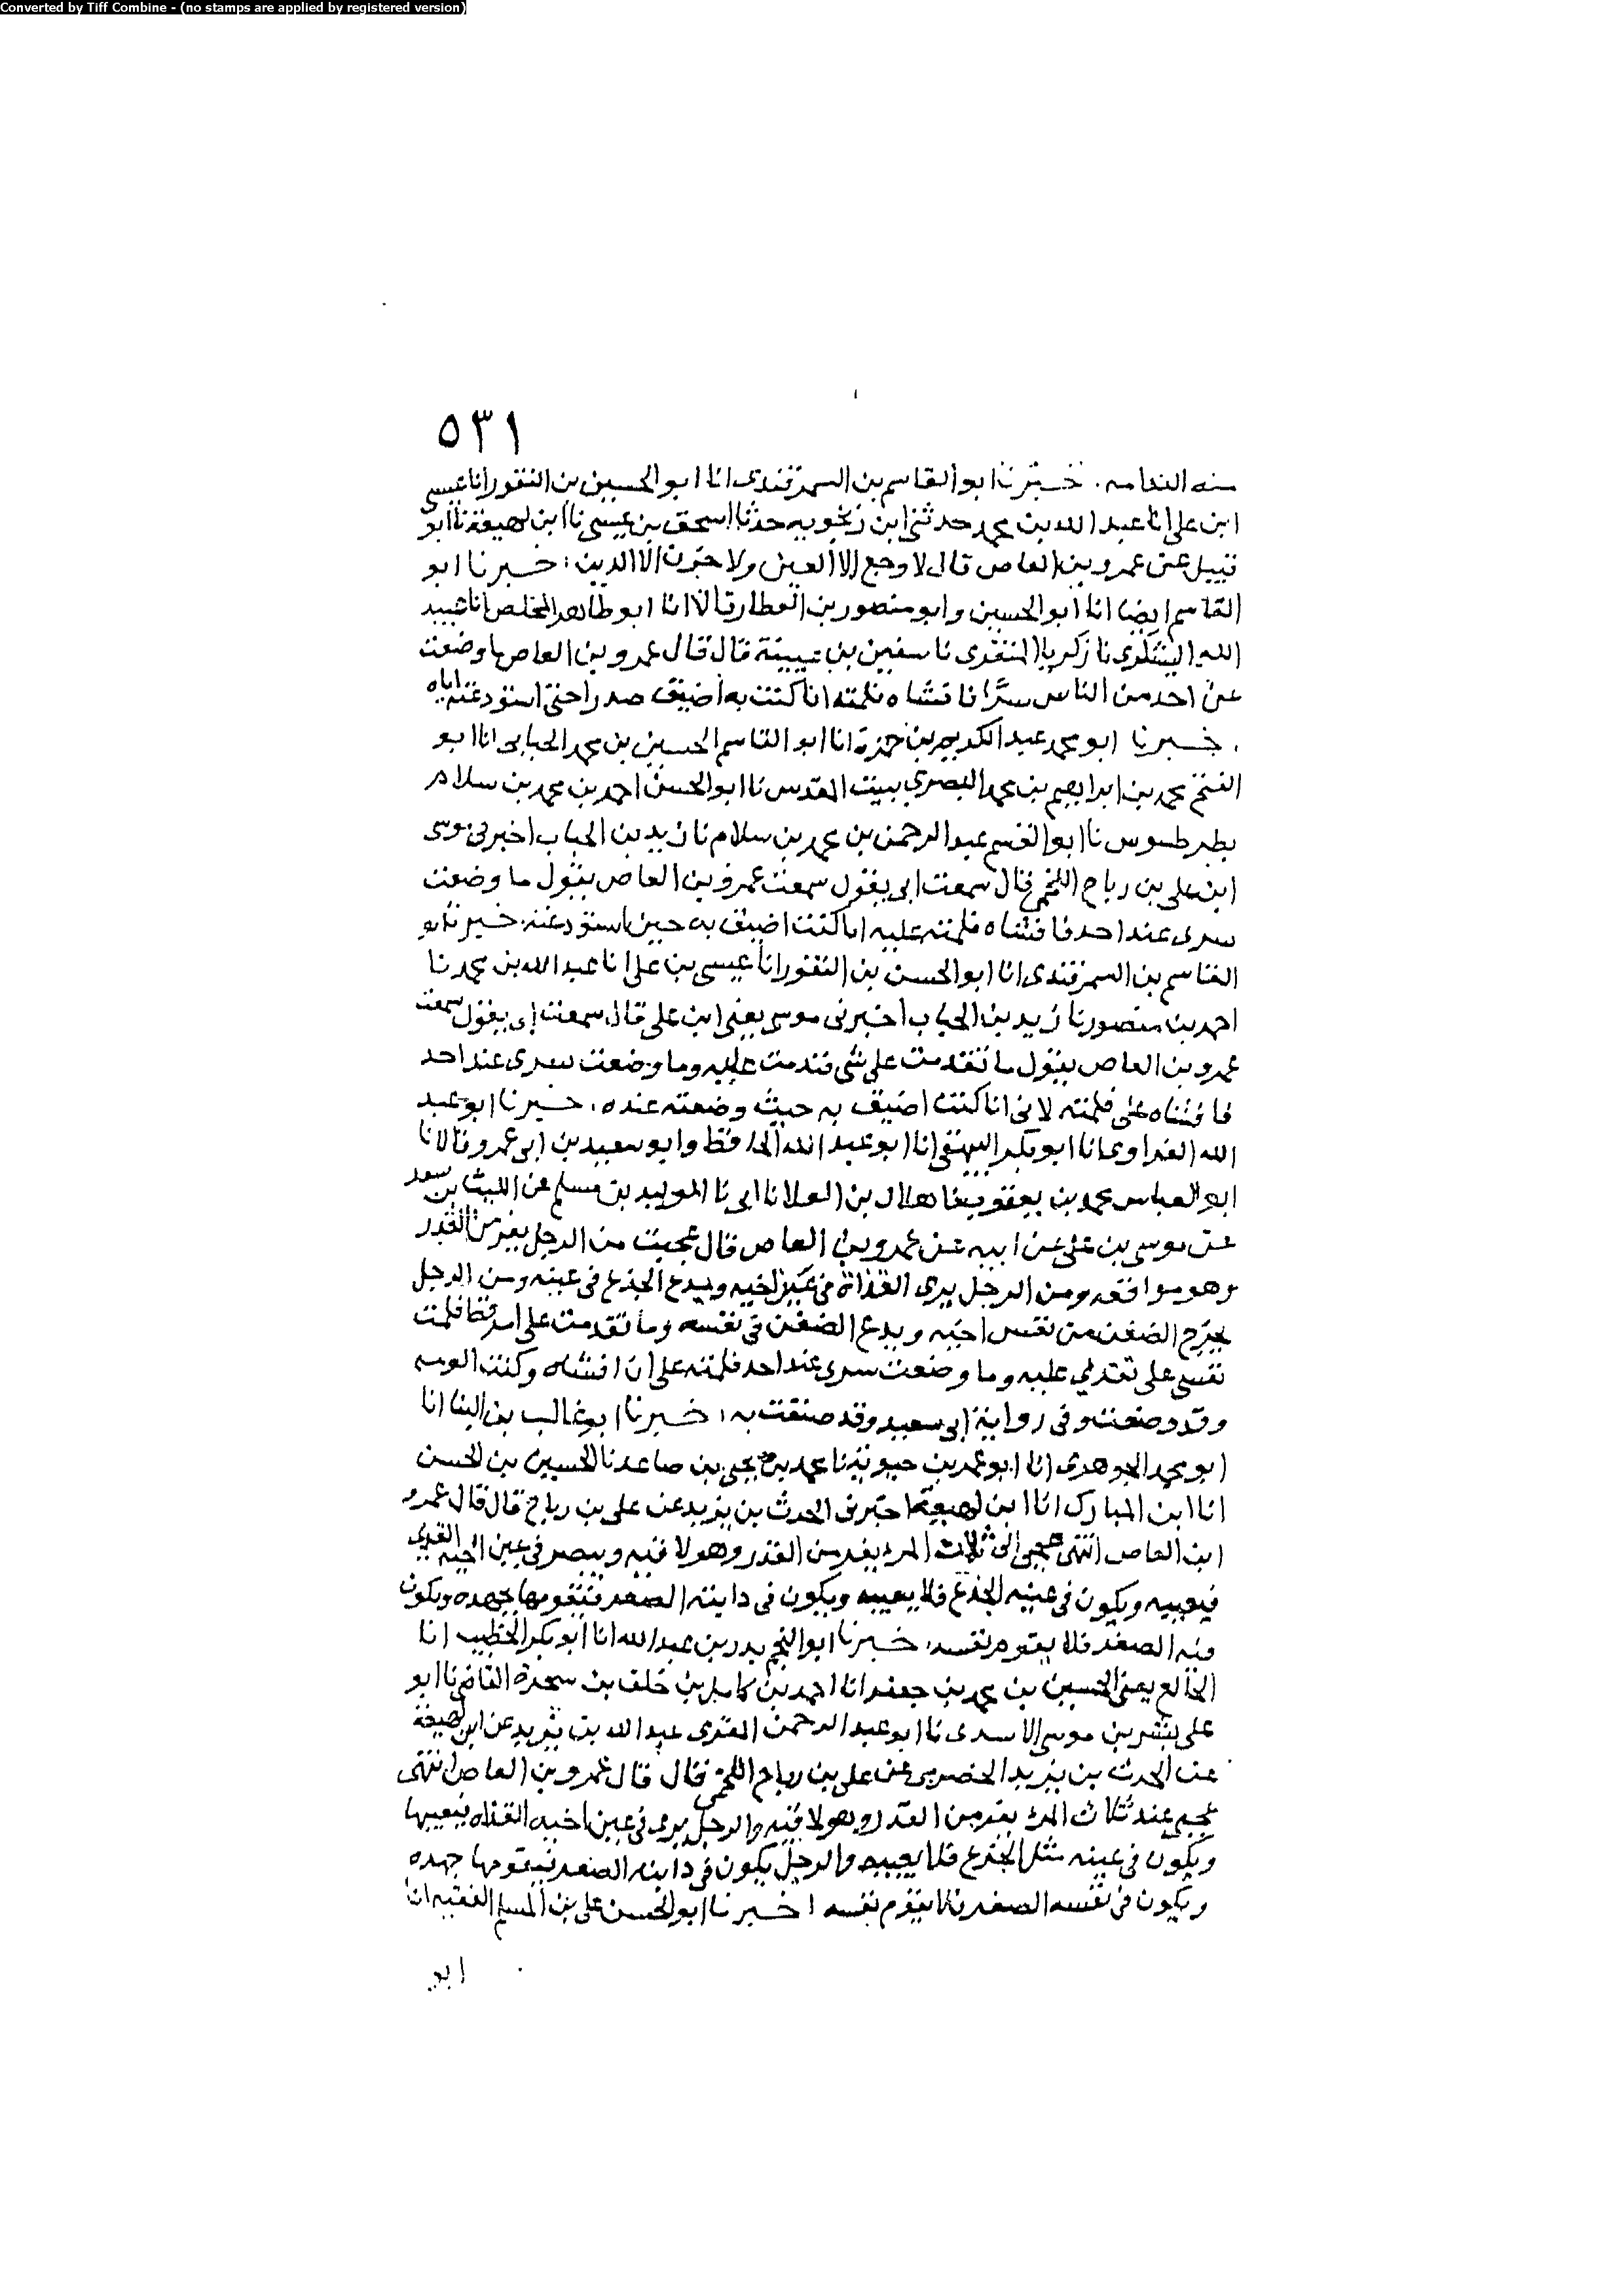 Converted by Tiff Combine - (no stamps are applied by registered version)
٥٣١
منه الندامه . خبرنا ابو القاسم بن السمرقندى انا ابو الحسين بن النقور انا عيسى
ابن على انا عبد الله بن محمد حدثنى ابن زنجويه حدثنا اسحق بن عيسى نا ابن لهيعة نا ابو
قبيل عن عمرو بن العاص قال لا وجع الا العين ولا حزن الا الدين : خبرنا ابو
القاسم ايضا انا ابو الحسين وابو منصور بن العطار قالا انا ابو طاهر المخلص انا عبيد
الله السكرى نا زكريا المنقرى نا سفين بن عيينة قال قال عمرو بن العاص ما وضعت
عند احد من الناس سرًا فافشاه فلمته انا كنت به اضيق صدرا حتى استودعته اياه
. خبرنا ابو محمد عبد الكريم بن حمزة انا ابو القاسم الحسين بن محمد الحنايى انا ابو
الفتح محمد بن ابراهيم بن محمد البصرى ببيت المقدس نا ابو الحسن احمد بن محمد بن سلام
بطرطسوس نا ابو القسم عبد الرحمن بن محمد بن سلام نا زيد بن الحباب اخبرنى موسى
ابن على بن رباح اللخمى قال سمعت ابى يقول سمعت عمرو بن العاص يقول ما وضعت
سرى عند احد فافشاه فلمته عليه انا كنت اضيق به حين استودعته . خبرنا ابو
القاسم بن السمرقندى انا ابو الحسن بن النقور انا عيسى بن على انا عبد الله بن محمد نا
احمد بن منصور نا زيد بن الحباب اخبرنى موسى يعنى ابن على قال سمعت ابى يقول سمعت
عمرو بن العاص يقول ما تقدمت على شى فندمت عليه وما وضعت سرى عند احد
فافشاه على فلمته لانى انا كنت اضيق به حيث وضعته عنده . خبرنا ابو عبد
الله الفراوى انا ابو بكر البيهقى انا ابو عبد الله الحافظ وابو سعيد بن ابى عمرو قالا نا
ابو العباس محمد بن يعقوب نا هلال بن العلا نا ابى نا الوليد بن مسلم عن الليث بن سعد
عن موسى بن على عن ابيه عن عمرو بن العاص قال عجبت من الرجل يفر من القدر
وهو مواقعه ومن الرجل يرى القذاة فى عين اخيه ويدع الجذع فى عينه ومن الرجل
يخرج الضغن من نفس اخيه ويدع الضغن فى نفسه وما تقدمت على امر قط فلمت
نفسى على تقدمي عليه وما وضعت سرى عند احد فلمته على ان افشاه وكنت الومه
وقد وضعت وفى رواية ابى سعيد وقد ضقت به : خبرنا ابو غالب بن البنا انا
ابو محمد الجوهرى انا ابو عمر بن حيوية نا محمد بن يحيى بن صاعد نا الحسين بن الحسن
انا ابن المبارك انا ابن لهيعة اخبرنى الحرث بن يزيد عن على بن رباح قال قال عمرو
ابن العاص انتهى عجبى الى ثلاث المرء يفر من القدر وهو لا قيه ويبصر فى عين اخيه القذى
فيعيبه ويكون فى عينه الجذع فلا يعيبه ويكون فى دابته الصعر فيقومها جهده ويكون
فيه الصعر فلا يقوم نفسه . خبرنا ابو النجم بدر بن عبد الله انا ابو بكر الخطيب انا
الخالع يعنى الحسين بن محمد بن جعفر انا احمد بن كامل بن خلف بن سجرة القاضى نا ابو
على بشر بن موسى الاسدى نا ابو عبد الرحمن المقرى عبد الله بن يزيد عن ابن لهيعة
عن الحرث بن يزيد الحضرمى عن على بن رباح اللخمى قال قال عمرو بن العاص انتهى
عجبى عند ثلاث المرء يفر من القدر وهو لا قيه والرجل يرى فى عين اخيه القذاه فيعيبها
ويكون فى عينه مثل الجذع فلا يعيبه والرجل يكون فى دابته الصعر فيقومها جهده
ويكون فى نفسه الصعر فلا يقوم نفسه اخبرنا ابو الحسن على بن المسلم الفقيه انا
ابو